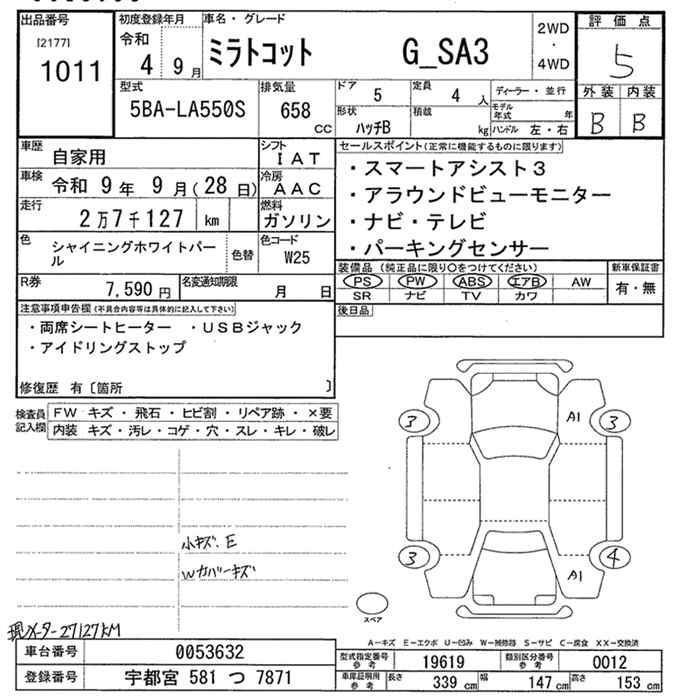 出品番号
[2177]
1011
初度登録年月
令和
4 9月
車名・グレード
ミラトコット G_SA3
2WD
・
4WD
評価点
5
外装 内装
B B
型式
5BA-LA550S
排気量
658 cc
ドア 5
定員 4 人
ディーラー・並行
形状 ハッチB
積載 kg
モデル年式 年
ハンドル 左・右
車歴 自家用
シフト IAT
車検 令和 9年 9月(28日)
冷房 AAC
走行 2万7千127 km
燃料 ガソリン
色 シャイニングホワイトパール
色替
色コード W25
R券 7,590円
名変通知期限 月 日
セールスポイント(正常に機能するものに限ります)
・スマートアシスト3
・アラウンドビューモニター
・ナビ・テレビ
・パーキングセンサー
装備品(純正品に限り○をつけてください)
PS PW ABS エアB AW
SR ナビ TV カワ
新車保証書
有・無
後日品
注意事項申告欄(不具合内容等は具体的に記入して下さい)
・両席シートヒーター ・USBジャック
・アイドリングストップ
修復歴 有[箇所 ]
検査員記入欄
FW キズ・飛石・ヒビ割・リペア跡・×要
内装 キズ・汚レ・コゲ・穴・スレ・キレ・破レ
小キズ、E
Wカバーキズ
現メーター27127KM
3 A1 3
3 A1 4
スペア
A-キズ E-エクボ U-凹み W-補修跡 S-サビ C-腐食 XX-交換済
車台番号 0053632
登録番号 宇都宮 581 つ 7871
型式指定番号参考 19619
類別区分番号参考 0012
車庫証明用参考 長さ 339cm 幅 147cm 高さ 153cm